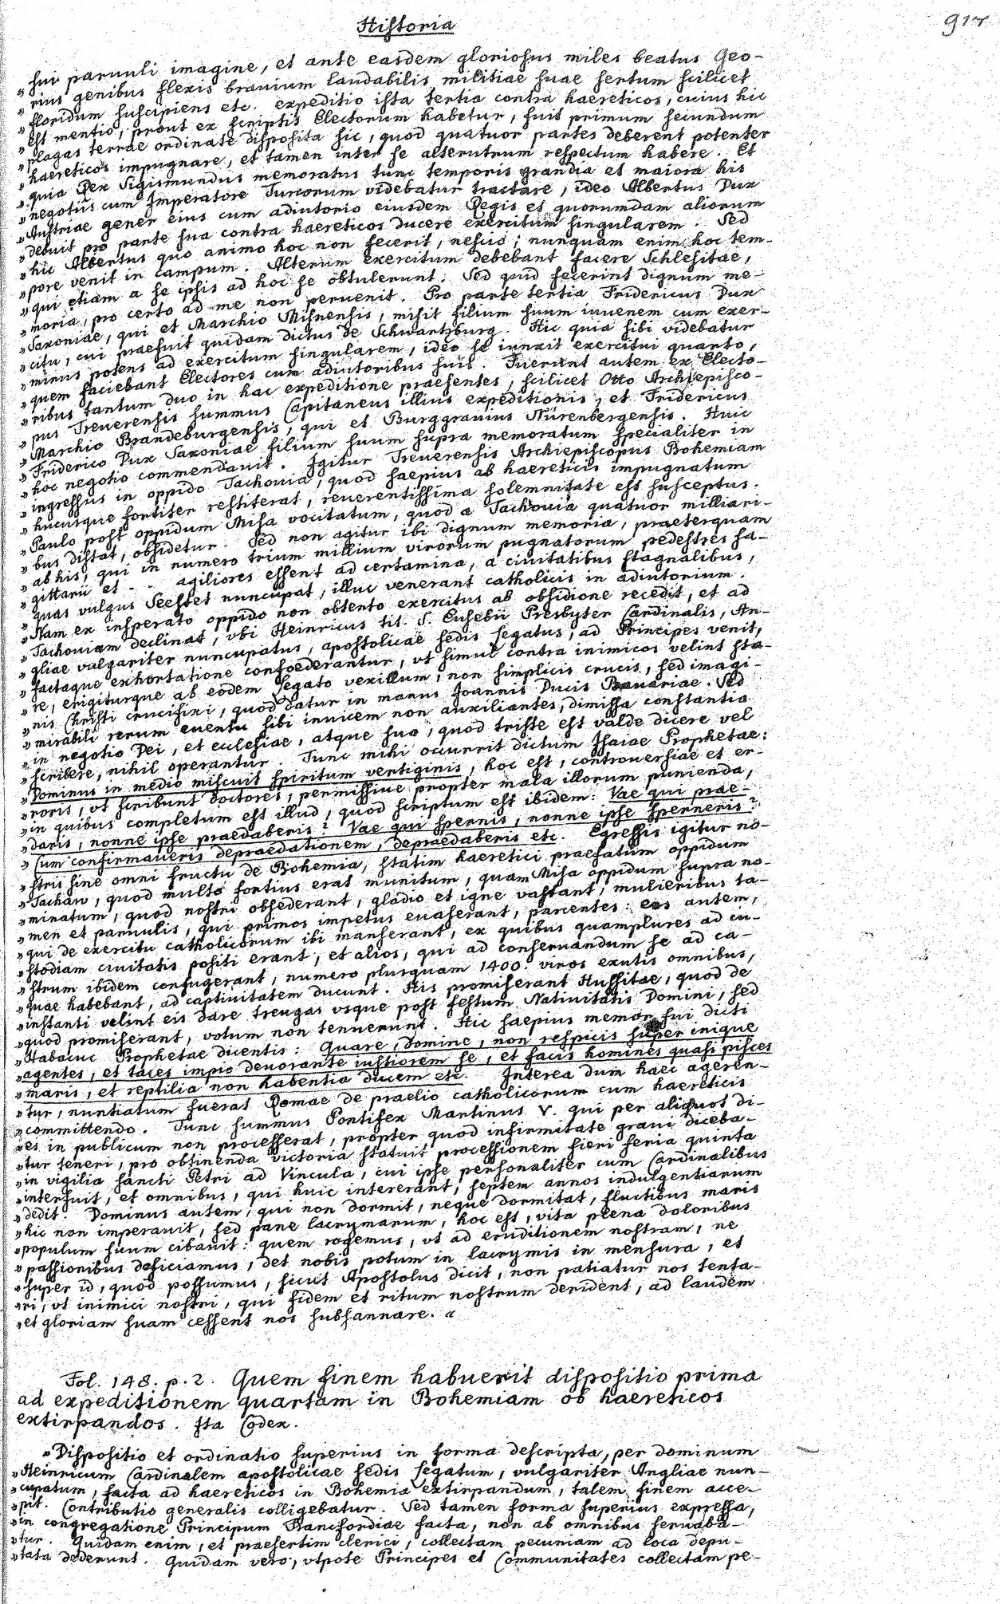 Historia
917
sui paruuli imagine, et ante easdem gloriosus miles beatus Geo-
„rius genibus flexis brauium laudabilis militiae suae sertum scilicet
„floridum suscipiens etc. expeditio ista tertia contra haereticos, cuius hic
„est mentio, prout ex scriptis Electorum habetur, fuit primum secundum
„plagas terrae ordinate disposita sic, quod quatuor partes deberent potenter
„haereticos impugnare, et tamen inter se alterutrum respectum habere. Et
„quia Rex Sigismundus memoratus tunc temporis grandia et maiora his
„negotiis cum Imperatore Turcorum videbatur tractare, ideo Albertus Dux
„Austriae gener eius cum adiutorio eiusdem Regis et quorumdam aliorum
„debuit pro parte sua contra haereticos ducere exercitum singularem. Sed
„hic Albertus quo animo hoc non fecerit, nescio; nunquam enim hoc tem-
„pore venit in campum. Alterum exercitum debebant facere Schlesitae,
„qui etiam a se ipsis ad hoc se obtulerunt. Sed quid fecerint dignum me-
„moria, pro certo ad me non peruenit. Pro parte tertia Fridericus Dux
„Saxoniae, qui et Marchio Misnensis, misit filium suum iuuenem cum exer-
„citu, cui praefuit quidam dictus de Schwartzburg. Hic quia sibi videbatur
„minus potens ad exercitum singularem, ideo se iunxit exercitui quarto,
„quem faciebant Electores cum adiutoribus suis. Fuerunt autem ex Electo-
„ribus tantum duo in hac expeditione praesentes, scilicet Otto Archiepisco-
„pus Treuerensis summus Capitaneus illius expeditionis, et Fridericus
„Marchio Brandeburgensis, qui et Burggrauius Nürenbergensis. Huic
„Friderico Dux Saxoniae filium suum supra memoratum specialiter in
„hoc negotio commendauit. Igitur Treuerensis Archiepiscopus Bohemiam
„ingressus in oppido Tachouia, quod saepius ab haereticis impugnatum
„hucusque fortiter restiterat, reuerentissima solemnitate est susceptus.
„Paulo post oppidum Misa vocitatum, quod a Tachouia quatuor milliari-
„bus distat, obsidetur. Sed non agitur ibi dignum memoria, praeterquam
„ab his, qui in numero trium millium virorum pugnatorum pedestres sa-
„gittarii et - agiliores essent ad certamina, a ciuitatibus stagnalibus,
„quas vulgus Seestet nuncupat, illuc venerant catholicis in adiutorium.
„Nam ex insperato oppido non obtento exercitus ab obsidione recedit, et ad
„Tachouiam declinat, vbi Heinricus tit. S. Eusebii Presbyter Cardinalis, An-
„gliae vulgariter nuncupatus, apostolicae sedis legatus, ad Principes venit,
„factaque exhortatione confoederantur, vt simul contra inimicos velint sta-
„re, erigiturque ab eodem Legato vexillum, non simplicis crucis, sed imagi-
„nis Christi crucifixi, quod datur in manus Joannis Ducis Bauariae. Sed
„mirabili rerum euentu sibi inuicem non auxiliantes, dimissa constantia
„in negotio Dei, et ecclesiae, atque sua, quod triste est valde dicere vel
„scribere, nihil operantur. Tunc mihi occurrit dictum Isaiae Prophetae:
„Dominus in medio miscuit spiritum vertiginis, hoc est, controuersiae et er-
„roris, vt scribunt doctores, permissiue propter mala illorum punienda,
„in quibus completum est illud, quod scriptum est ibidem: Vae qui prae-
„daris, nonne ipse praedaberis? Vae qui spernis, nonne ipse sperneris?
„Cum confirmaueris depraedationem, depraedaberis etc. Egressis igitur no-
„stris sine omni fructu de Bohemia, statim haeretici praefatum oppidum
„Tachaw, quod multo fortius erat munitum, quam Misa oppidum supra no-
„minatum, quod nostri obsederant, gladio et igne vastant, mulieribus ta-
„men et paruulis, qui primos impetus euaserant, parcentes: eos autem,
„qui de exercitu catholicorum ibi manserant, ex quibus quamplures ad cu-
„stodiam ciuitatis positi erant, et alios, qui ad conseruandum se ad ca-
„strum ibidem confugerant, numero plusquam 1400. viros exutis omnibus,
„quae habebant, ad captiuitatem ducunt. His promiserant Hussitae, quod de
„instanti velint eis dare treugas vsque post festum Natiuitatis Domini, sed
„quod promiserant, votum non tenuerunt. Hic saepius memor fui dicti
„Habacuc Prophetae dicentis: Quare, Domine, non respicis super inique
„agentes, et taces impio deuorante iustiorem se, et facis homines quasi pisces
„maris, et reptilia non habentia ducem etc. Interea dum haec ageren-
„tur, nuntiatum fuerat Romae de praelio catholicorum cum haereticis
„committendo. Tunc summus Pontifex Martinus V. qui per aliquot di-
„es in publicum non processerat, propter quod infirmitate graui diceba-
„tur teneri, pro obtinenda victoria statuit processionem fieri feria quinta
„in vigilia sancti Petri ad Vincula, cui ipse personaliter cum Cardinalibus
„interfuit, et omnibus, qui huic intererant, septem annos indulgentiarum
„dedit. Dominus autem, qui non dormit, neque dormitat, fluctibus maris
„hic non imperauit, sed pane lacrymarum, hoc est, vita plena doloribus
„populum suum cibauit: quem rogemus, vt ad eruditionem nostram, ne
„passionibus deficiamus, det nobis potum in lacrymis in mensura, et
„super id, quod possumus, sicut Apostolus dicit, non patiatur nos tenta-
„ri, vt inimici nostri, qui fidem et ritum nostrum derident, ad laudem
„et gloriam suam cessent nos subsannare. “
Fol. 148. p. 2. Quem finem habuerit dispositio prima
ad expeditionem quartam in Bohemiam ob haereticos
extirpandos. Ita Codex.
„Dispositio et ordinatio superius in forma descripta, per dominum
„Heinricum Cardinalem apostolicae sedis legatum, vulgariter Angliae nun-
„cupatum, facta ad haereticos in Bohemia extirpandum, talem finem acce-
„pit. Contributio generalis colligebatur. Sed tamen forma superius expressa,
„in congregatione Principum Francfordiae facta, non ab omnibus seruaba-
„tur. Quidam enim, et praesertim clerici, collectam pecuniam ad loca depu-
„tata dederunt. Quidam vero, vtpote Principes et Communitates collectam pe-